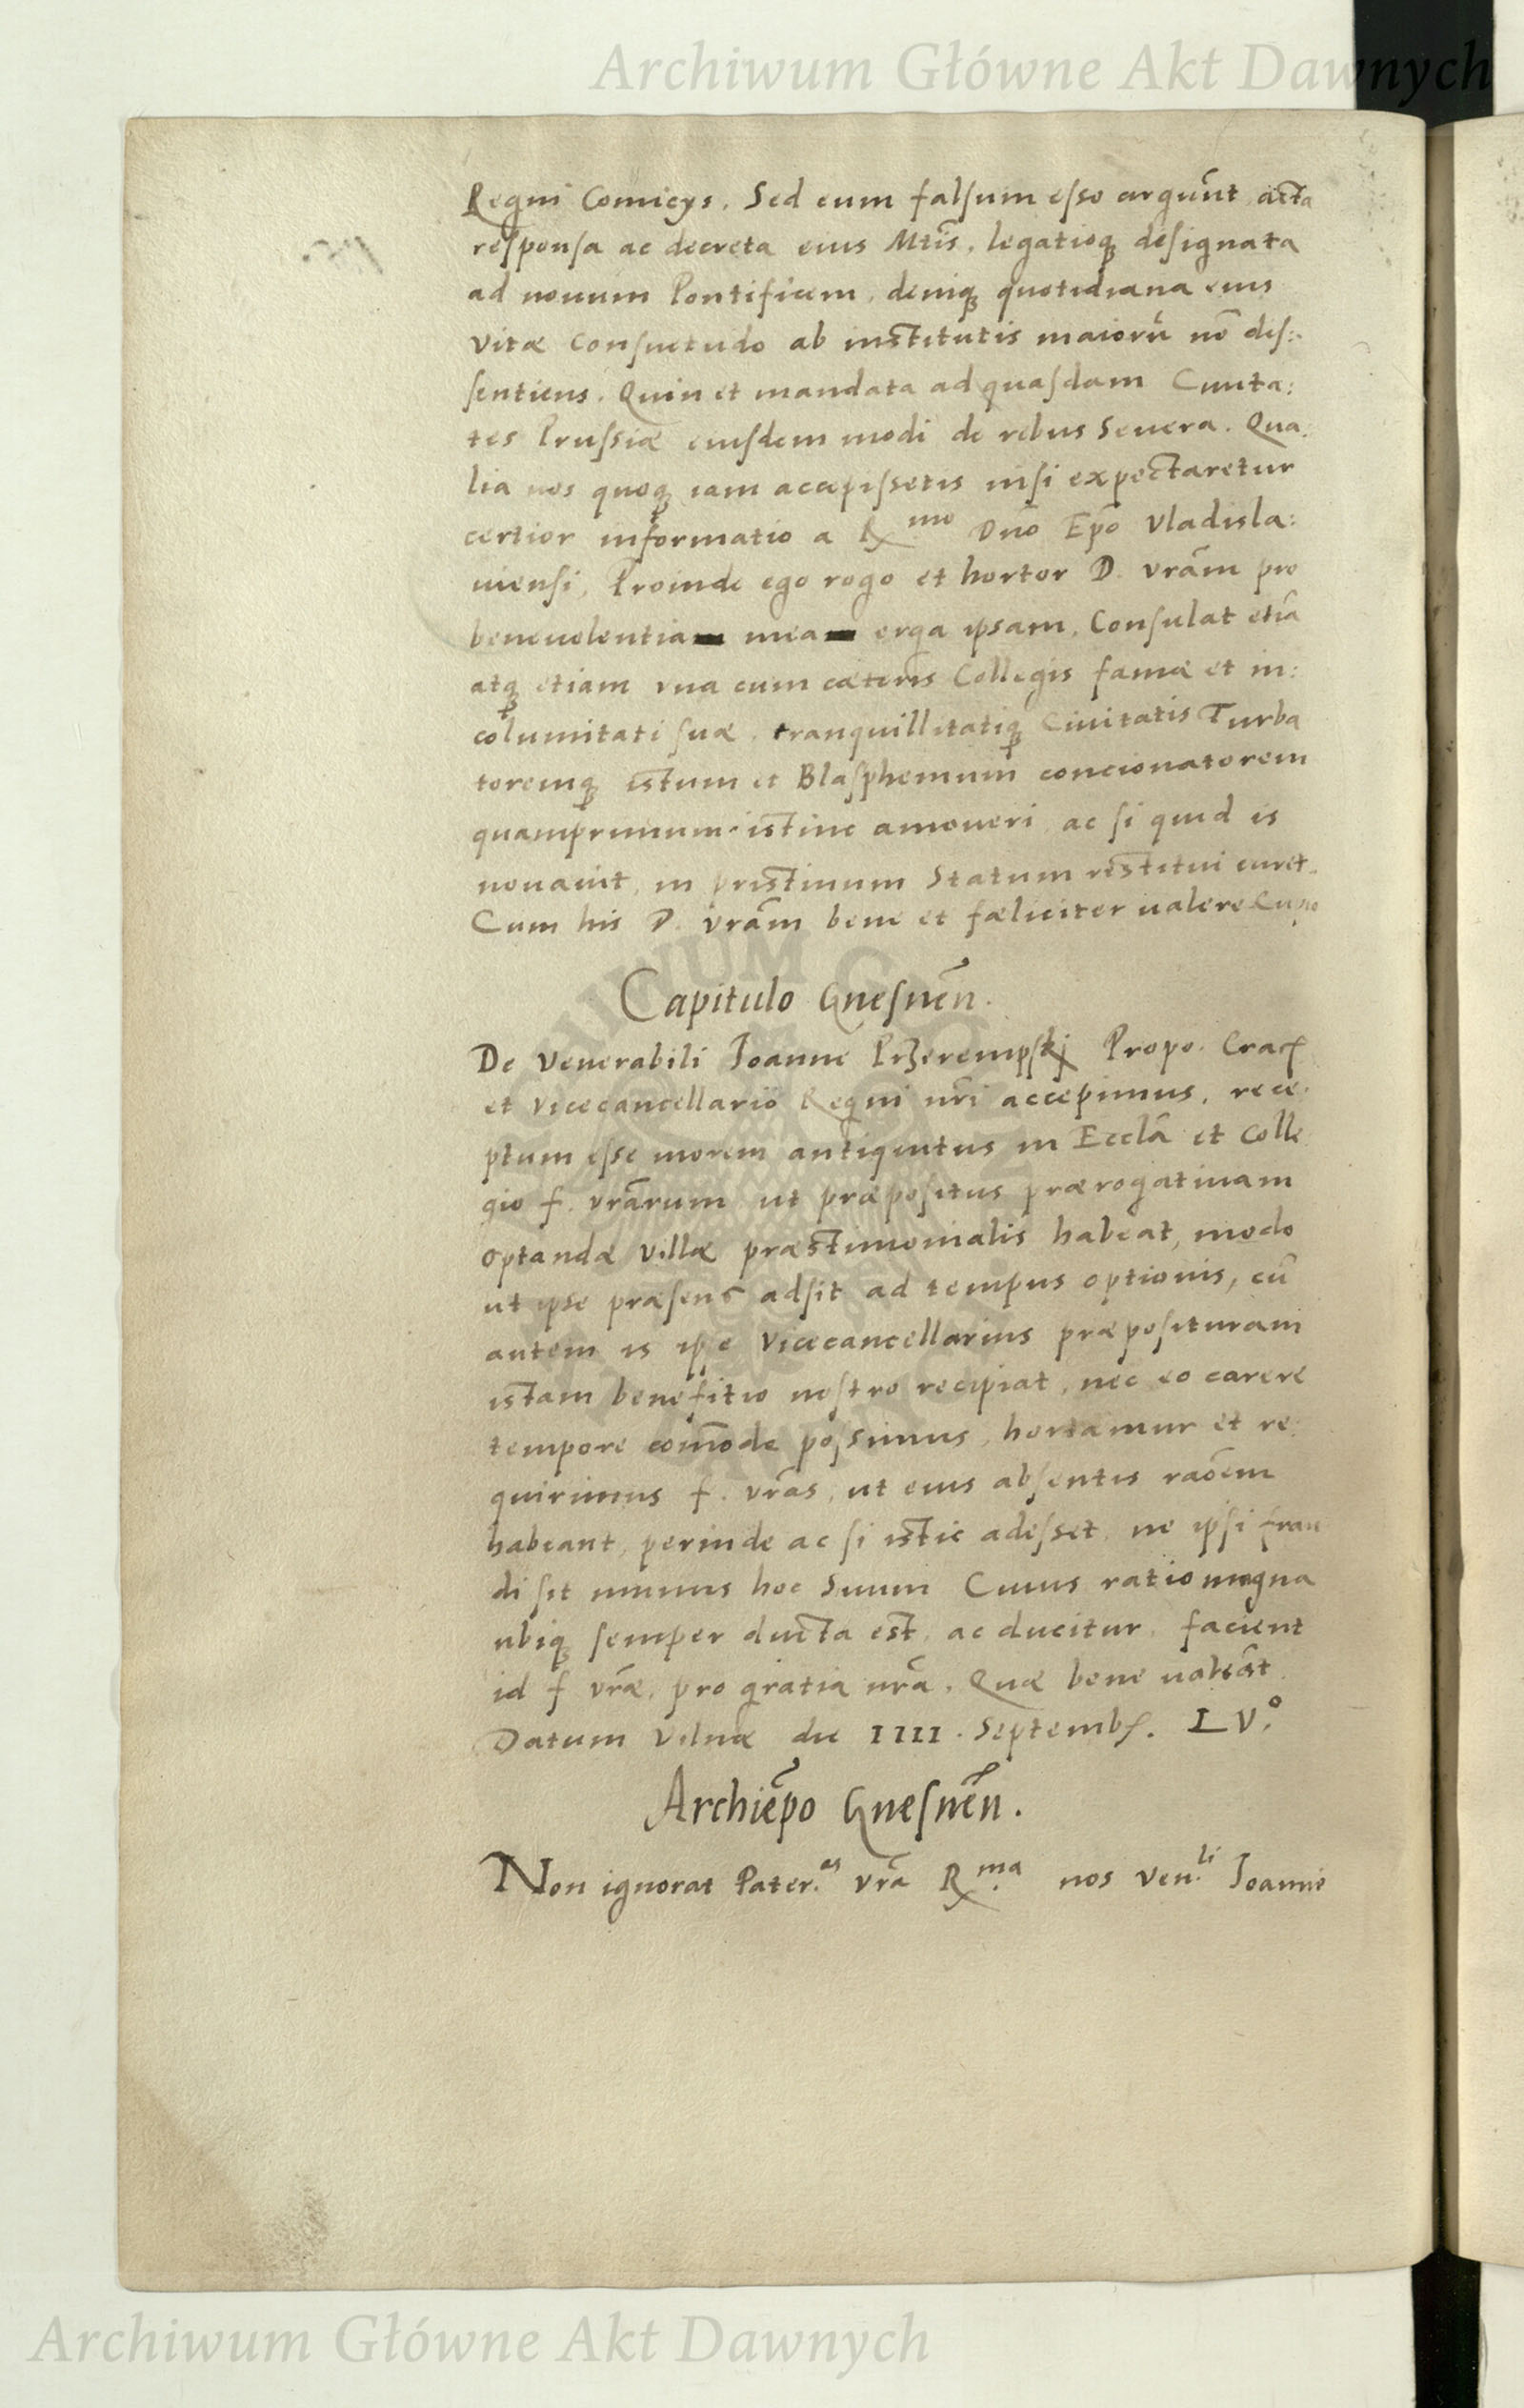 Archiwum Główne Akt Dawnych
Regni Comicijs. Sed eum falsum esse arguũnt acta
responsa ac decreta eius Mtis̃, legatioq; designata
ad nouum Pontificem, deniq; quotidiana eius
vitæ Consuetudo ab institutis maiorũ nõ dis:
sentiens. Quin et mandata ad quasdam Ciuita:
tes Prussiæ eiusdem modi de rebus Seuera. Qua:
lia uos quoq; iam accepissetis nisi expectaretur
certior informatio a R.mo Dño Epõ Vladisla:
uiensi, Proinde ego rogo et hortor D. vrãm pro
beneuolentia mea erga ipsam, Consulat etiã
atq; etiam vna cum cæteris Collegis famæ et in:
columitati suæ, tranquillitatiq; Ciuitatis Turba
toremq; istum et Blasphemum concionatorem
quamprimum istinc amoueri ac si quid is
nouauit, in pristinum Statum restitui curet.
Cum his D. vrãm bene et fæliciter ualere Cupio
Capitulo Gnesneñ.
De Venerabili Joanne Przerempskj Propo. Crac
et Vicecancellario Regni nri accepimus, rece:
ptum esse morem antiquitus in Ecclã et Colle
gio f. vrãrum ut præpositus prærogatiuam
optandæ villæ præstimonialis habeat, modo
ut ipse præsens adsit ad tempus optionis, cũ
autem is ipse Vicecancellarius præposituram
istam benefitio nostro recipiat, nec eo carere
tempore com̃ode possimus, hortamur et re:
quirimus f. vrãs, ut eius absentis raõem
habeant, perinde ac si istic adesset, ne ipsi frau
di sit munus hoc Suum Cuius ratio magna
ubiq; semper ducta est, ac ducitur, facient
id f vrãe, pro gratia nrã. Quæ bene ualeãt
Datum Vilnæ die IIII. Septemb. LV.o
Archiẽpo Gnesneñ.
Non ignorat Pater.as vrã R.ma nos Ven.li Joanni
Archiwum Główne Akt Dawnych